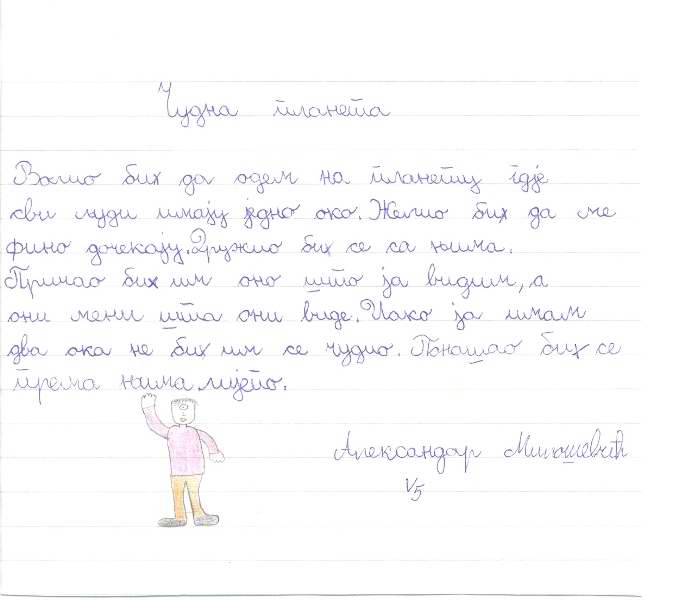 Чудна планета
Волио бих да одем на планету гдје
сви људи имају једно око. Желио бих да ме
фино дочекају. Дружио бих се са њима.
Причао бих им оно што ја видим, а
они мени шта они виде. Иако ја имам
два ока не бих им се чудио. Понашао бих се
према њима лијепо.
Александар Милошевић
V5